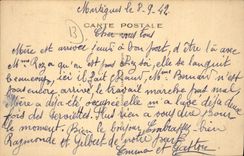 Martigues le 8-9-42
CARTE POSTALE
Cher vous tous
Mère est arrivée jeudi à bon port, d'être là avec
Mme Roza qu'on est pas chez soi, elle se languit
beaucoup, ici il fait beau, Mme
pas encore arrivé, le travail marche pas mal
Mère a déjà été occupée elle m'a lavé déjà deux
fois des serviettes. Plus rien a vous dire pour
le moment. Bien le bonjour Embrassez bien
Raymonde et Gilbert de notre part
Emma et Gaston